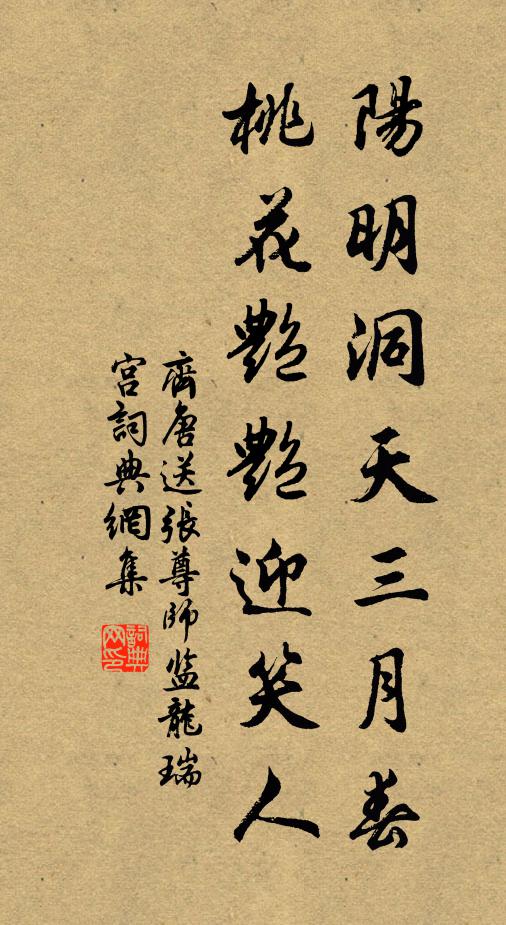 陽明洞天三月春
桃花艷艷迎笑人
齊唐送張尊師监龍瑞
宫詞典網集
詞典
网印